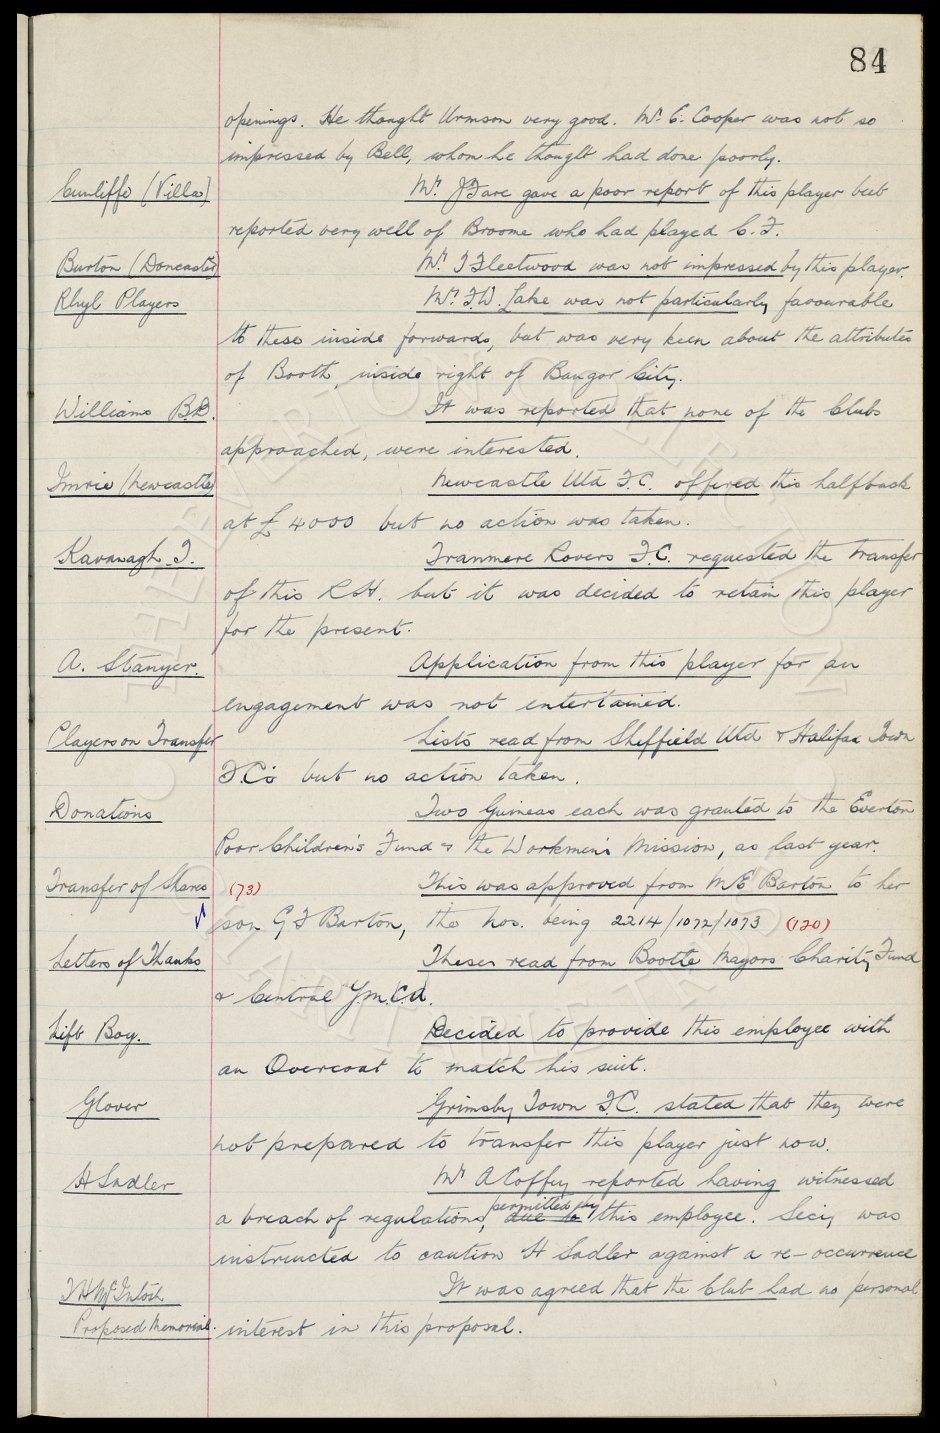 84
openings. He thought Urmson very good. Mr. E. Cooper was not so
impressed by Bell, whom he thought had done poorly.
Cunliffe (Villa) Mr. J Fare gave a poor report of this player but
reported very well of Broome who had played C.F.
Burton (Doncaster) Mr. T Fleetwood was not impressed by this player.
Rhyl Players Mr. F.W. Lake was not particularly favourable
to these inside forwards, but was very keen about the attributes
of Booth, inside right of Bangor City.
Williams B.D. It was reported that none of the Clubs
approached, were interested.
Imrie (Newcastle) Newcastle Utd F.C. offered this halfback
at £4000 but no action was taken.
Kavanagh. T. Tranmere Rovers F.C. requested the transfer
of this R.H. but it was decided to retain this player
for the present.
A. Stanyer. Application from this player for an
engagement was not entertained.
Players on Transfer Lists read from Sheffield Utd & Halifax Town
F.C's but no action taken.
Donations Two Guineas each was granted to the Everton
Poor Children's Fund & the Workmen's Mission, as last year.
Transfer of Shares (73) This was approved from M E Barton to her
son G F Barton, the Nos. being 2214/1072/1073 (120)
Letters of Thanks These read from Bootle Mayors Charity Fund
& Central Y.M.C.A.
Lift Boy. Decided to provide this employee with
an Overcoat to match his suit.
Glover Grimsby Town F.C. stated that they were
not prepared to transfer this player just now.
H Sadler Mr A Coffey reported having witnessed
permitted by
a breach of regulations, due to this employee. Secy was
instructed to caution H Sadler against a re-occurrence
T H McIntosh It was agreed that the Club had no personal
Proposed Memorial. interest in this proposal.